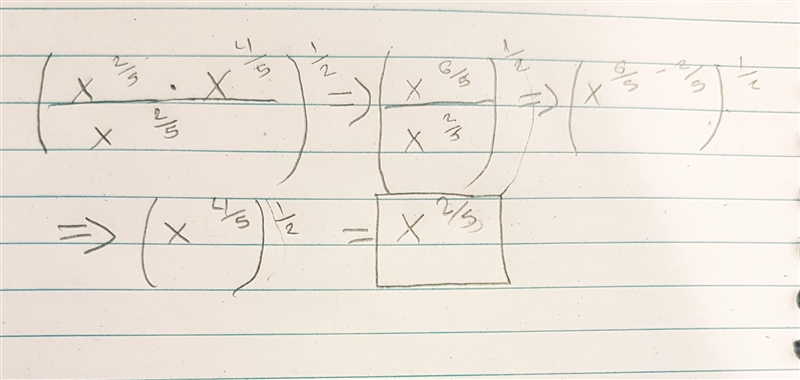 (x^{2/5} · x^{4/5} / x^{2/5})^{1/2} ⇒ (x^{6/5} / x^{2/5})^{1/2} ⇒ (x^{6/5 - 2/5})^{1/2}
⇒ (x^{4/5})^{1/2} = x^{2/5}